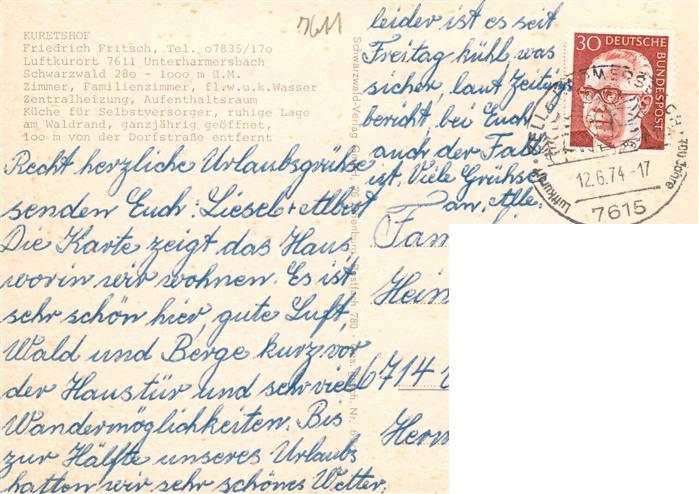 7611
KURETSHOF
Friedrich Fritsch, Tel. 07835/170
Luftkurort 7611 Unterharmersbach
Schwarzwald 280 - 1000 m ü.M.
Zimmer, Familienzimmer, fl.w.u.k.Wasser
Zentralheizung, Aufenthaltsraum
Küche für Selbstversorger, ruhige Lage
am Waldrand, ganzjährig geöffnet,
100 m von der Dorfstraße entfernt
Recht herzliche Urlaubsgrühse
senden Euch: Liesel + Albert
Die Karte zeigt das Haus,
worin wir wohnen. Es ist
sehr schön hier, gute Luft,
Wald und Berge kurz vor
der Haustür und sehr viel
Wandermöglichkeiten. Bis
zur Hälfte unseres Urlaubs
hatten wir sehr schönes Wetter,
leider ist es seit
Freitag kühl, was
sicher, laut Zeitungs
bericht, bei Euch
auch der Fall
ist. Viele Grühse
an Alle.
Schwarzwald-Verlag
Postfach 780
Fam
Hein
6714
Herm
30 DEUTSCHE
BUNDESPOST
12.6.74-17
7615
Luftkurort
700 Jahre